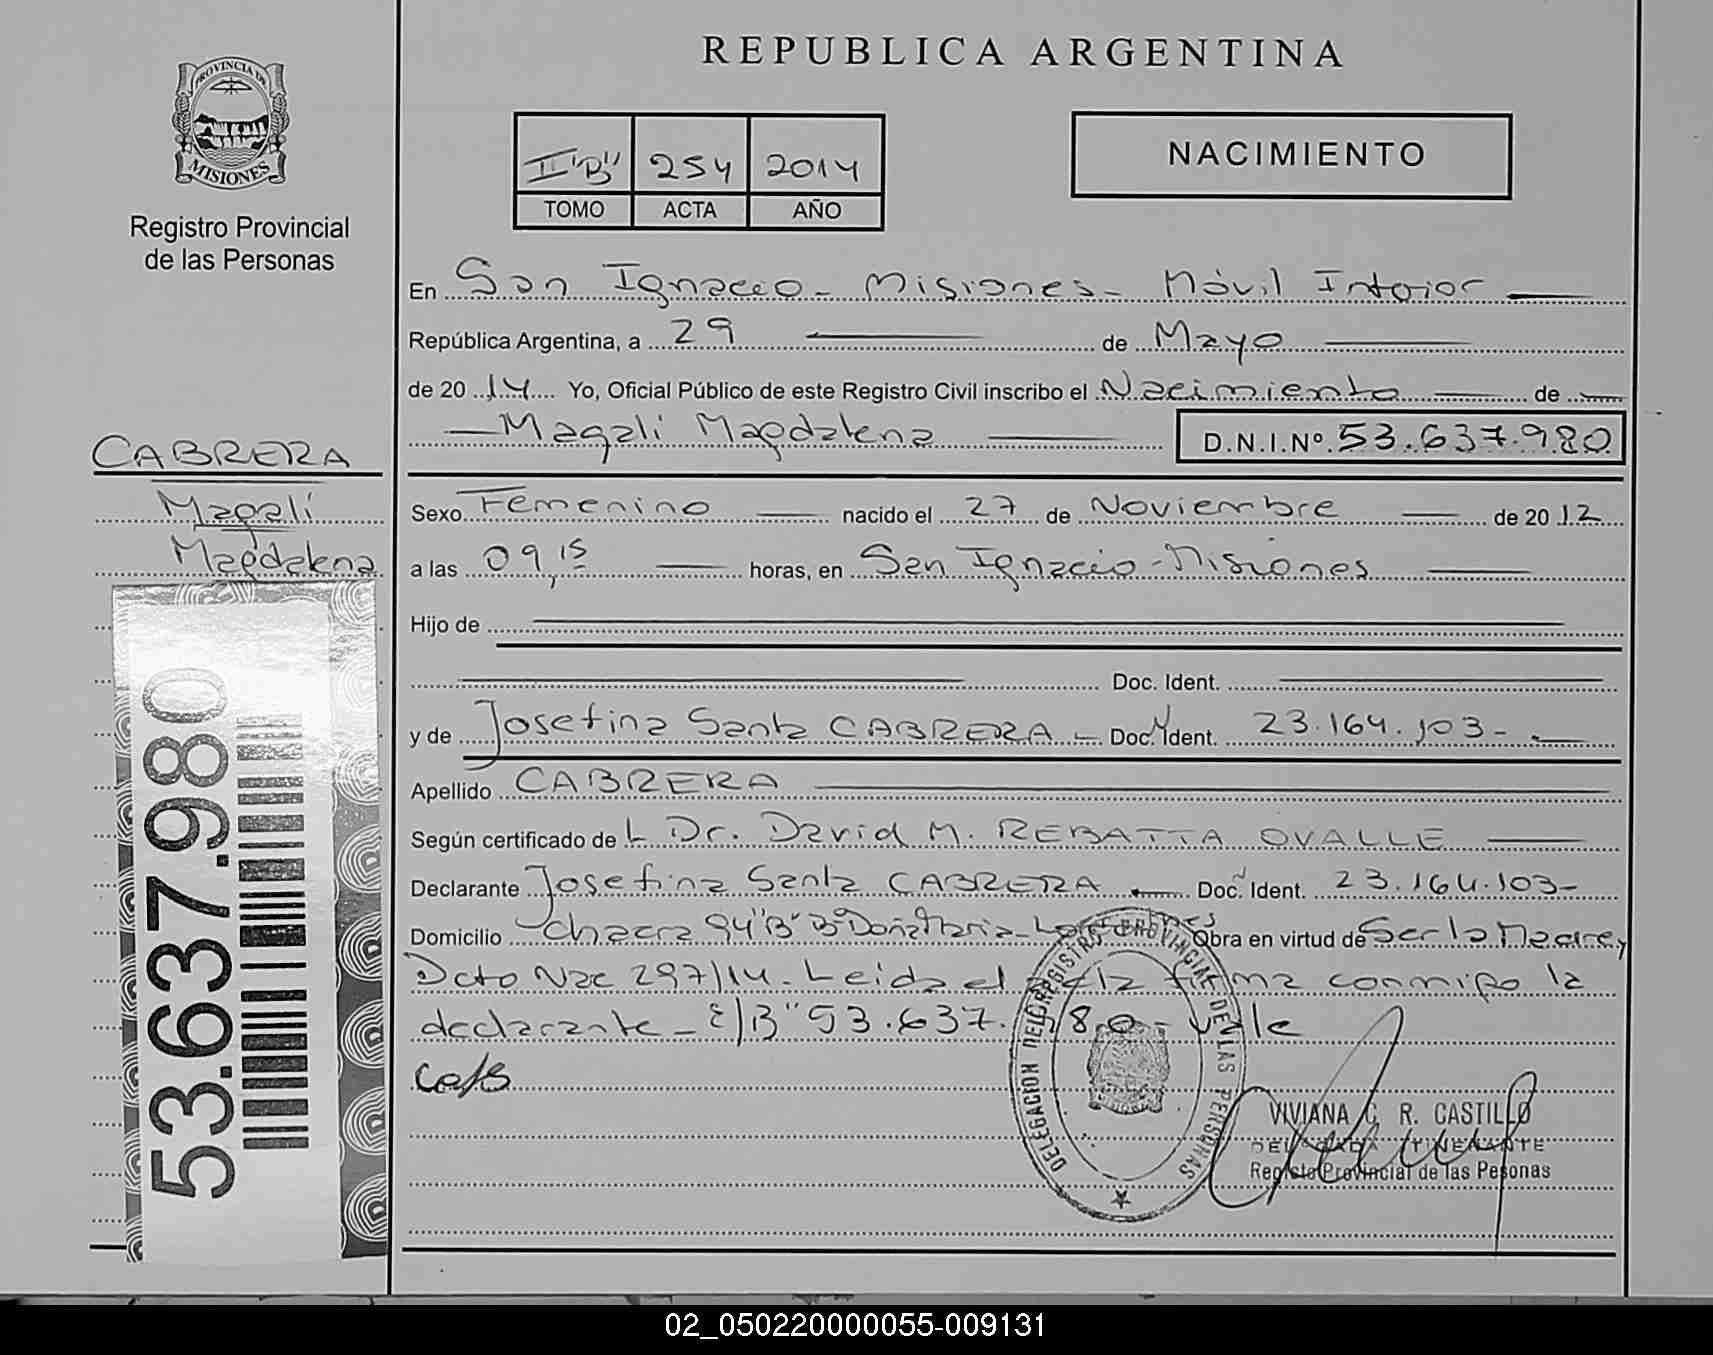 REPUBLICA ARGENTINA
PROVINCIA DE
MISIONES
Registro Provincial
de las Personas
II "B" 254 2014
TOMO ACTA AÑO
NACIMIENTO
En San Ignacio - Misiones - Móvil Interior
República Argentina, a 29 de Mayo
de 2014 Yo, Oficial Público de este Registro Civil inscribo el Nacimiento de
Magalí Magdalena D.N.I.Nº 53.637.980
CABRERA
Magalí
Magdalena
53.637.980
Sexo Femenino nacido el 27 de Noviembre de 2012
a las 09,15 horas, en San Ignacio - Misiones
Hijo de
Doc. Ident.
y de Josefina Santa CABRERA - Doc. Ident. 23.164.103-
Apellido CABRERA
Según certificado de L Dr. David M. REBATTA OVALLE
Declarante Josefina Santa CABRERA Doc. Ident. 23.164.103-
Domicilio Chacra 94 "B" Bº Doña María - Obra en virtud de Ser la Madre y
Dcto Nac 297/14. Leida el firma conmigo la
declarante - E/B" 53.637. 80 - Vale
DELEGACION DEL REGISTRO PROVINCIAL DE LAS PERSONAS
VIVIANA C. R. CASTILLO
DELEGADA ITINERANTE
Registo Provincial de las Pesonas
02_050220000055-009131